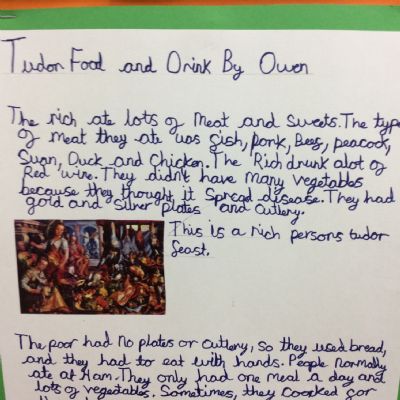 Tudor Food and Drink By Owen
The rich ate lots of meat and sweets. The type
of meat they ate was fish, pork, Beef, peacock,
Swan, Duck and Chicken. The Rich drunk alot of
Red wine. They didn't have many vegetables
because they thought it Spread disease. They had
gold and silver plates and cutlery.
This is a rich persons tudor
feast.
The poor had no plates or cutlery, so they used bread,
and they had to eat with hands. People normally
ate at 11am. They only had one meal a day and
lots of vegetables. Sometimes, they coocked for